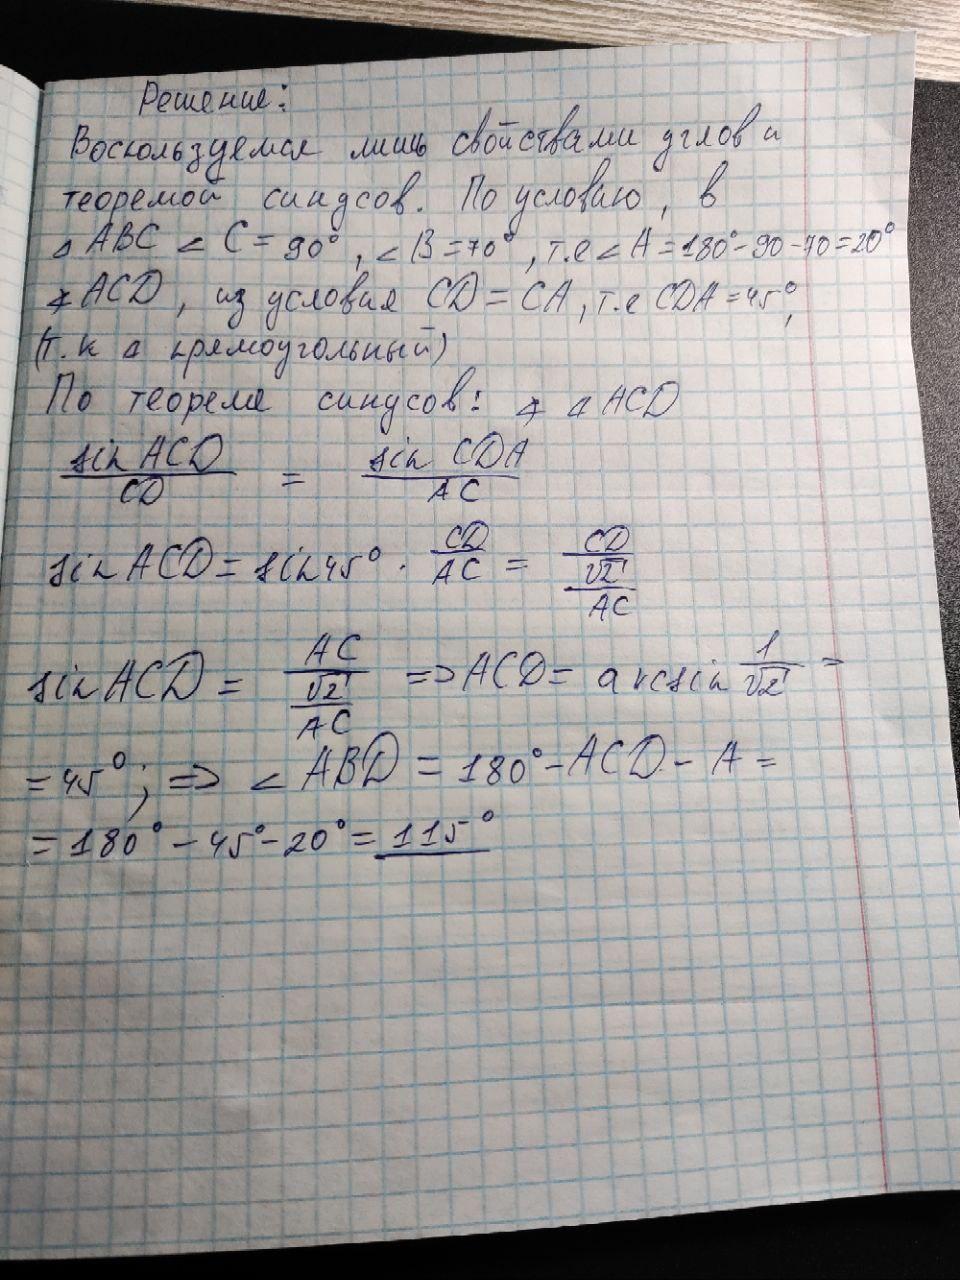 Решение:
Воспользуемся лишь свойствами углов и
теоремой синусов. По условию, в
△ ABC ∠ C = 90°, ∠ B = 70°, т.е ∠ A = 180° - 90 - 70 = 20°
∡ ACD, из условия CD = CA, т.е CDA = 45°,
(т.к △ прямоугольный)
По теореме синусов: ∡ △ ACD
sin ACD / CD = sin CDA / AC
sin ACD = sin 45° · CD / AC = CD / √2 / AC
sin ACD = AC / √2 / AC => ACD = arcsin 1 / √2 =
= 45°; => ∠ ABD = 180° - ACD - A =
= 180° - 45° - 20° = 115°